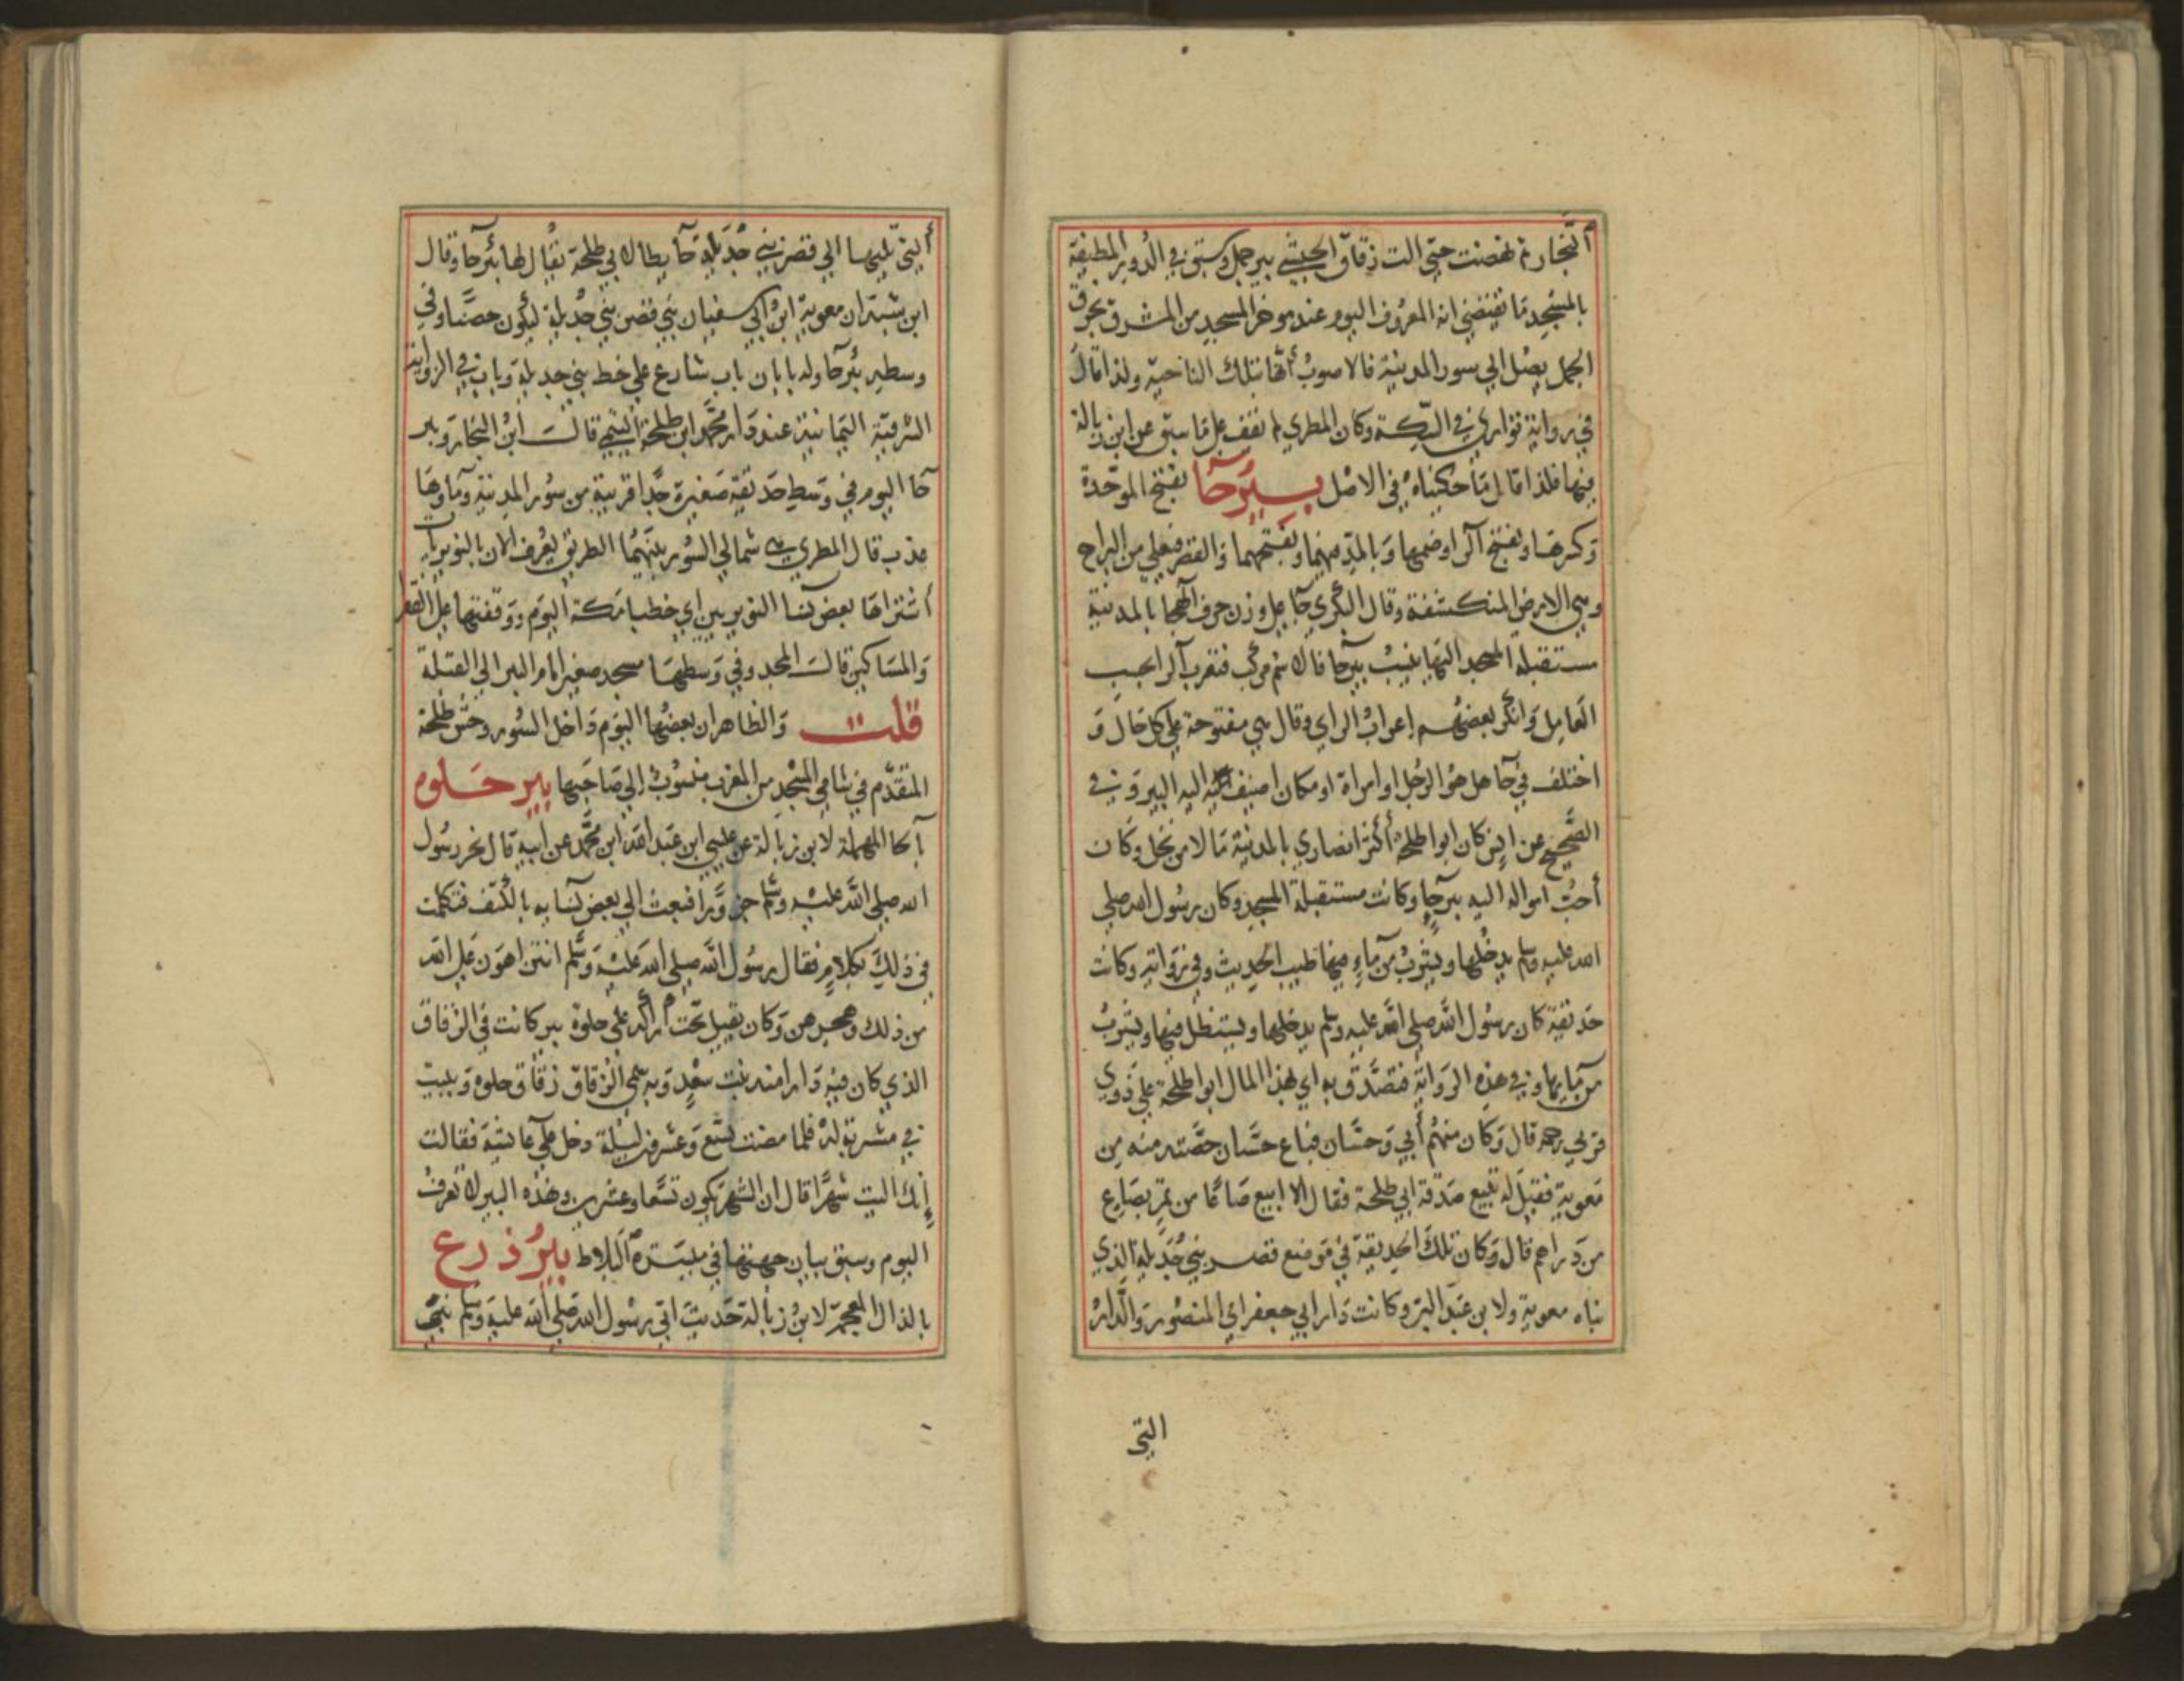 النجار ثم نهضت حتى الت زقاق الحبشي بير جمل وسبق في الدور المطيفة
بالمسجد ما تقتضي انه المعروف اليوم عند موخر المسجد من المشرق بخرق
الجمل يصل الي سور المدينة فالاصوب أنها بتلك الناحية ولذا قال
في رواية تواري في السكة وكان المطري لم تقف على ما سبق عن ابن زبالة
فيها فلذا قال ما حكيناه في الاصل بيرحا بفتح الموحدة
وكسرها وبفتح الرا وضمها وبالمد فيهما وبفتحهما والقصر فيعلي من البراح
وهي الارض المنكشفة وقال البكري حا على وزن حرف الهجا بالمدينة
مستقبلة المسجد اليها ينسب بيرحا قال ثم مركب فتقرب الرا بحسب
العامل وانكر بعضهم اعراب الراي وقال هي مفتوحة على كل حال و
اختلف في حا هل هو الرجل او امراة او مكان اضيف اليه البير و في
الصحيح عن انس كان ابوا طلحة أكثر انصاري بالمدينة مالا من نخل وكان
أحب امواله اليه بيرحا وكانت مستقبلة المسجد وكان رسول الله صلى
الله عليه وسلم يدخلها ويشرب من ماء فيها طيب الحديث وفي رواية وكانت
حديقة كان رسول الله صلى الله عليه وسلم يدخلها ويستظل فيها ويشرب
من مايها وفي هذه الرواية فتصدق به اي هذا المال ابوا طلحة على ذوي
قربي رحمه قال وكان منهم أبي وحسان فباع حسان حصته منه من
معوية فقيل له تبيع صدقة ابي طلحة فقال الا ابيع صاعا من تمر بصاع
من دراهم قال وكان تلك الحديقة في موضع قصر بني جديلة الذي
بناه معوية ولابن عبد البر وكانت دار ابي جعفر اي المنصور والدار
التي
التي تليها الي قصر بني جديلة حايطا لابي طلحة يقال لها بئرحا وقال
ابن شبة ان معوية ابن ابي سفيان بني قصر بني جديلة ليكون حصنا وفي
وسطه بئرحا وله بابان باب شارع على خط بني جديلة وباب في الزاوية
الشرقية اليمانية عند دار محمد ابن طلحة التيمي قالت ابن النجار وبر
حا اليوم في وسط حديقة صغيرة جدا قريبة من سور المدينة وماوها
عذب قال المطري هي شمالي السور بينهما الطريق يعرف الان بالنويرية
اشتراها بعض نسا النويريين اي خطبا مكة اليوم ووقفتها على الفقرا
والمساكين قالت المجد وفي وسطها مسجد صغير امام البر الي القبلة
قلت والظاهر ان بعضها اليوم داخل السور وحش طلحة
المتقدم في شامي المسجد من المغرب منسوب الي صاحبها بير حلوه
بالحا المهملة لابن زبالة عن عيسي ابن عبد الله ابن محمد عن ابيه قال نحر رسول
الله صلى الله عليه وسلم جزورا فبعث الي بعض نسايه بالكتف فتكلمت
في ذلك بكلام فقال رسول الله صلى الله عليه وسلم انتن اهون على الله
من ذلك وهجرهن وكان يقيل تحت اراكة على حلوة بير كانت في الزقاق
الذي كان فيه دار امنة بنت سعد وبه سمي الزقاق زقاق حلوه ويبيت
في مشربة له فلما مضت تسع وعشرون ليلة دخل على عايشة فقالت
إنك اليت شهرا قال ان الشهر يكون تسعا وعشرين وهذه البير لا تعرف
اليوم وسبق بيان جهتها في ميسرة البلاط بير ذرع
بالذال المعجمة لابن زبالة حديث اتي رسول الله صلى الله عليه وسلم بني